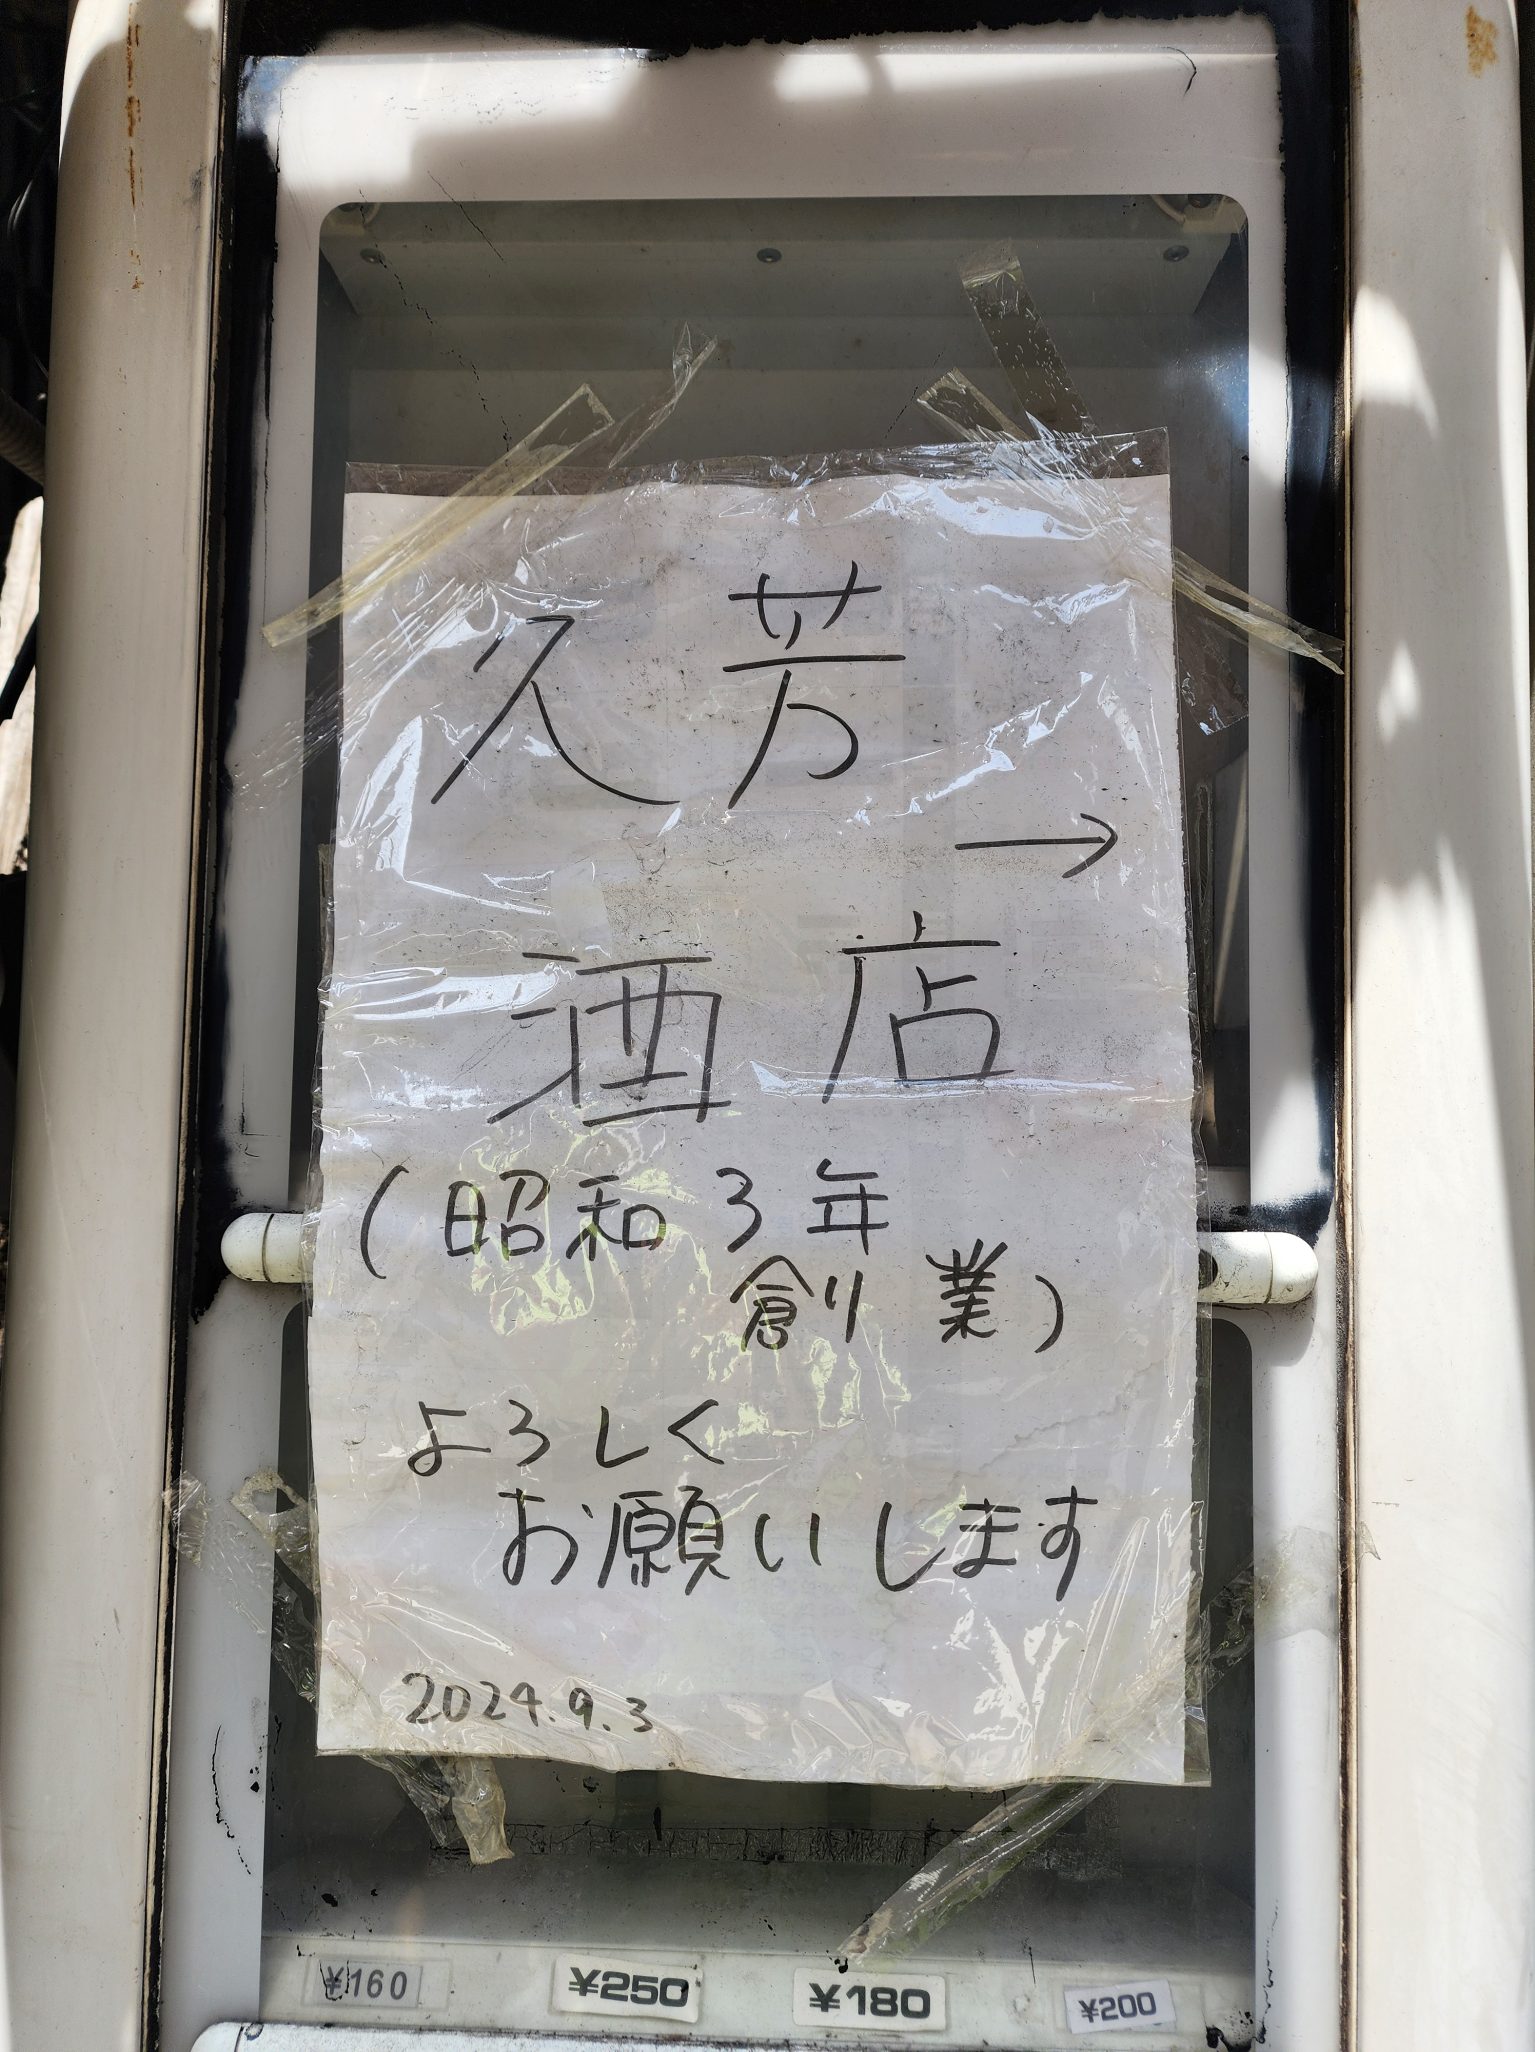 久芳
→
酒店
(昭和3年
創業)
よろしく
お願いします
2024.9.3
¥160
¥250
¥180
¥200